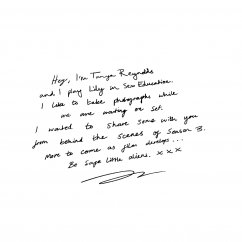 Hey, I'm Tanya Reynolds
and I play Lily in Sex Education.
I like to take photographs while
we are waiting on set.
I wanted to share some with you
from behind the scenes of Season 3.
More to come as film develops...
Be safe little aliens. x x x